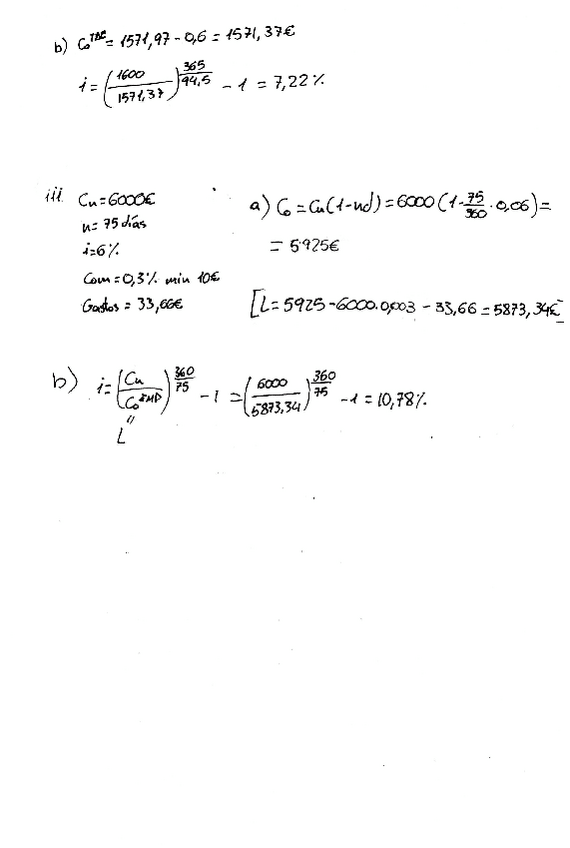 b) Co^TAE = 1571,97 - 0,6 = 1571,37€
i = (1600/1571,37)^(365/94,5) - 1 = 7,22%
iii. Cn = 6000€
n = 75 días
i = 6%
Com = 0,3% min 10€
Gastos = 33,66€
a) Co = Cn(1-nd) = 6000(1-75/360·0,06) =
= 5925€
[L = 5925 - 6000·0,003 - 33,66 = 5873,34€
b) i = (Cn/Co)^(360/75) - 1 = (6000/5873,34)^(360/75) - 1 = 10,78%
"
L